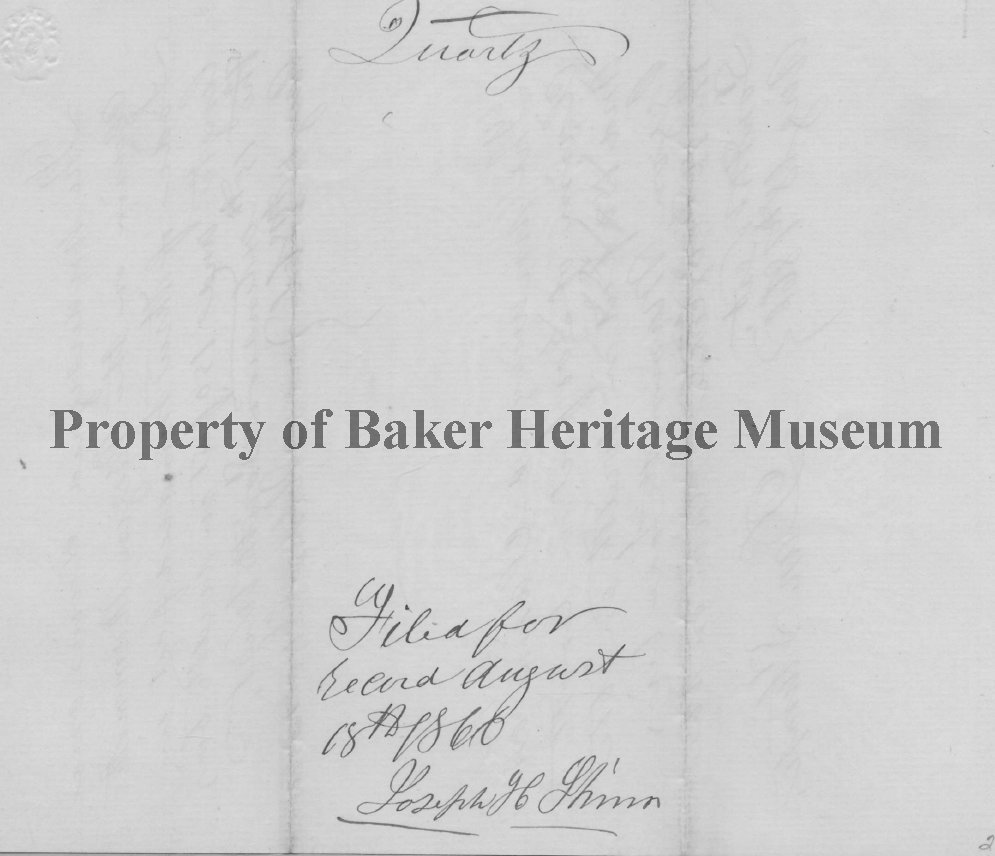 Quartz
Property of Baker Heritage Museum
Filed for
record August
18th 1868
Joseph H Shinn
2